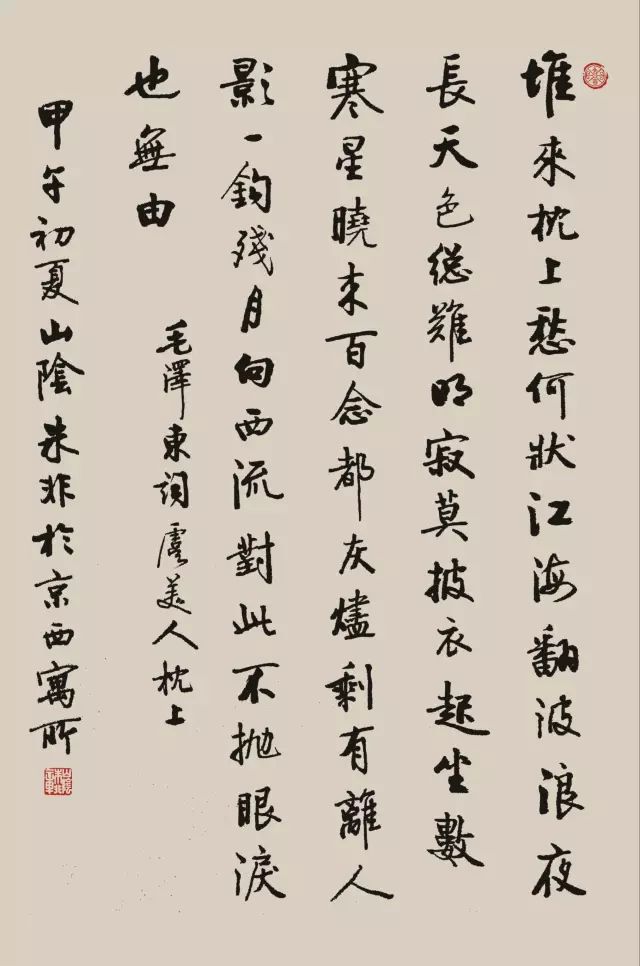 堆來枕上愁何狀江海翻波浪夜
長天色總難明寂莫披衣起坐數
寒星曉來百念都灰燼剩有離人
影一鈎殘月向西流對此不拋眼淚
也無由
毛澤東詞虞美人枕上
甲午初夏山陰朱非於京西寓所